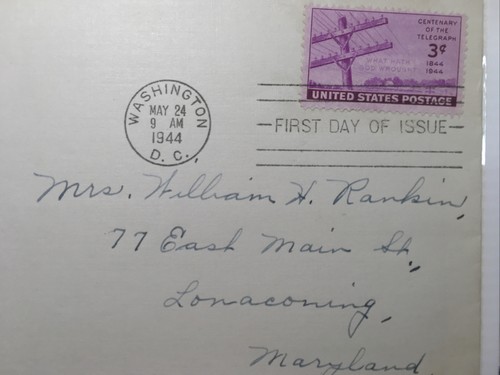 CENTENARY
OF THE
TELEGRAPH
3¢
1844
1944
WHAT HATH
GOD WROUGHT
UNITED STATES POSTAGE
WASHINGTON
MAY 24
9 AM
1944
D. C.
FIRST DAY OF ISSUE
Mrs. William H. Rankin,
77 East Main St.,
Lonaconing,
Maryland.